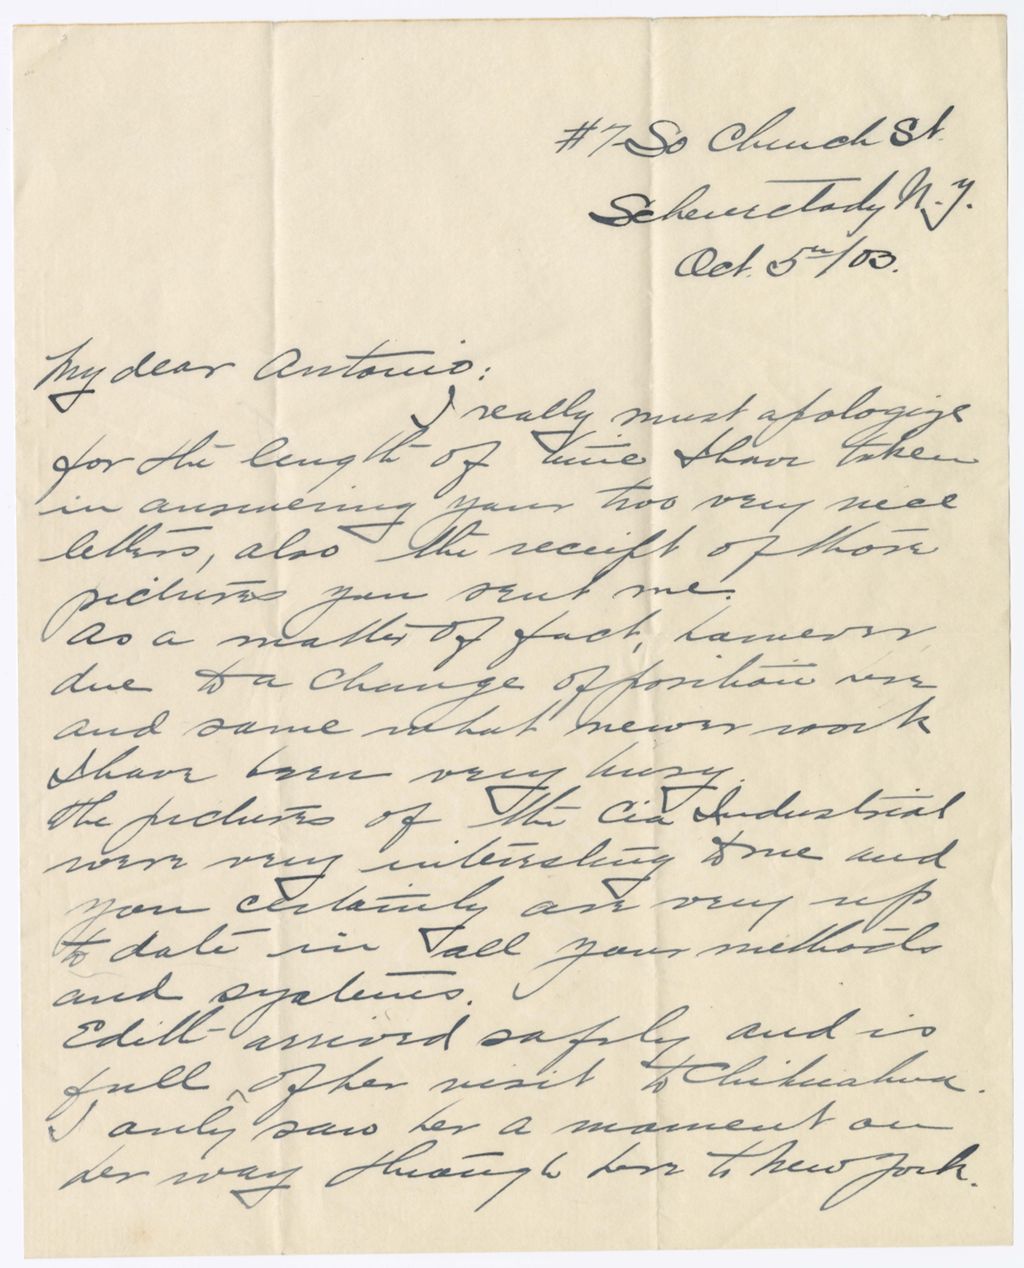 #7 So Church St.
Schenectady N.Y.
Oct. 5th/03.
My dear Antonio:
I really must apologize
for the length of time I have taken
in answering your two very nice
letters, also the receipt of those
pictures you sent me.
As a matter of fact, however,
due to a change of position here
and some what newer work
I have been very busy.
The pictures of the Cia Industrial
were very interesting to me and
you certainly are very up
to date in all your methods
and systems.
Edith arrived safely and is
full of her visit to Chihuahua.
I only saw her a moment on
her way through here to New York.